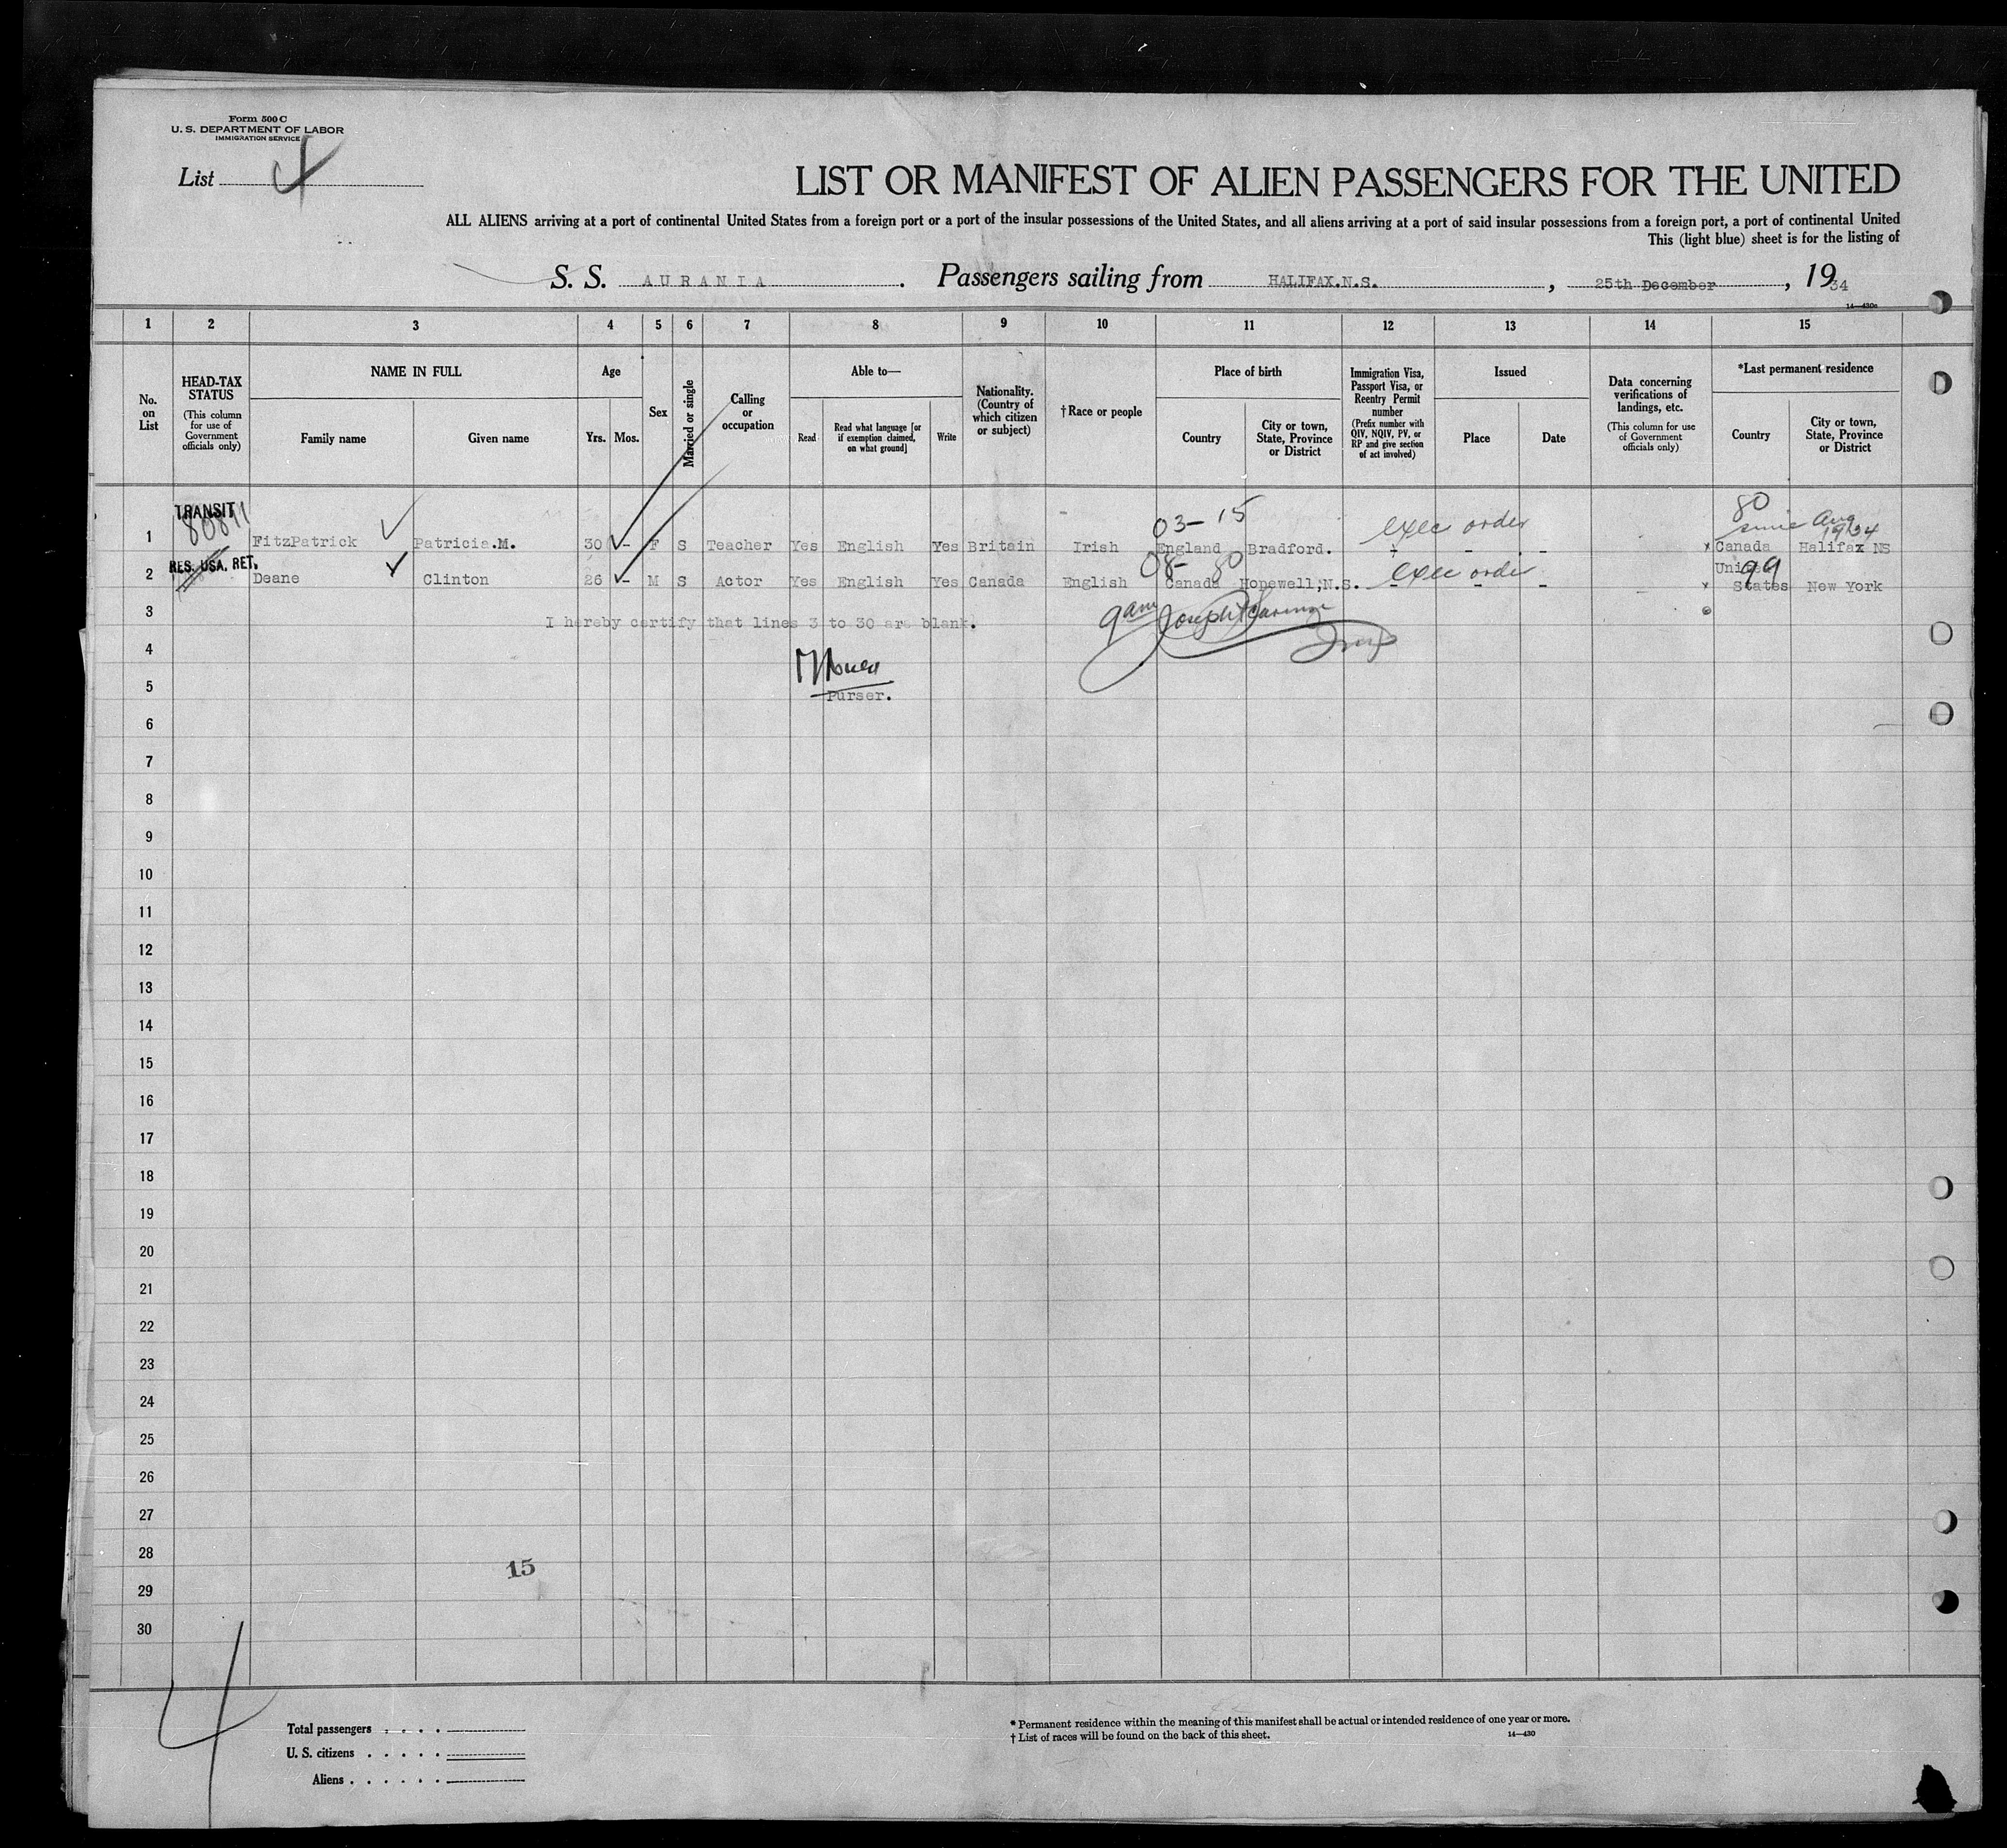 Form 500 C
U. S. DEPARTMENT OF LABOR
IMMIGRATION SERVICE
List 4
LIST OR MANIFEST OF ALIEN PASSENGERS FOR THE UNITED
ALL ALIENS arriving at a port of continental United States from a foreign port or a port of the insular possessions of the United States, and all aliens arriving at a port of said insular possessions from a foreign port, a port of continental United
This (light blue) sheet is for the listing of
S. S. AURANIA. Passengers sailing from HALIFAX.N.S., 25th December, 1934
14—430a
1 2 3 4 5 6 7 8 9 10 11 12 13 14 15
No. on List
HEAD-TAX STATUS (This column for use of Government officials only)
NAME IN FULL
Family name Given name
Age
Yrs. Mos.
Sex
Married or single
Calling or occupation
Able to—
Read
Read what language [or if exemption claimed, on what ground]
Write
Nationality. (Country of which citizen or subject)
†Race or people
Place of birth
Country
City or town, State, Province or District
Immigration Visa, Passport Visa, or Reentry Permit number (Prefix number with QIV, NQIV, PV, or RP and give section of act involved)
Issued
Place Date
Data concerning verifications of landings, etc. (This column for use of Government officials only)
*Last permanent residence
Country
City or town, State, Province or District
TRANSIT 03-15 exec order 80 since Aug 1934
1 FitzPatrick Patricia.M. 30 - F S Teacher Yes English Yes Britain Irish England Bradford. - - - x Canada Halifax NS
RES. USA. RET. 08- 80 exec order 99
2 Deane Clinton 26 - M S Actor Yes English Yes Canada English Canada Hopewell,N.S. - - - x United States New York
3 I hereby certify that lines 3 to 30 are blank. 9am Joseph
4
5 Purser.
6
7
8
9
10
11
12
13
14
15
16
17
18
19
20
21
22
23
24
25
26
27
28
15
29
30
4
Total passengers . . . .
U. S. citizens . . . . .
Aliens . . . . . .
* Permanent residence within the meaning of this manifest shall be actual or intended residence of one year or more.
† List of races will be found on the back of this sheet.
14—430